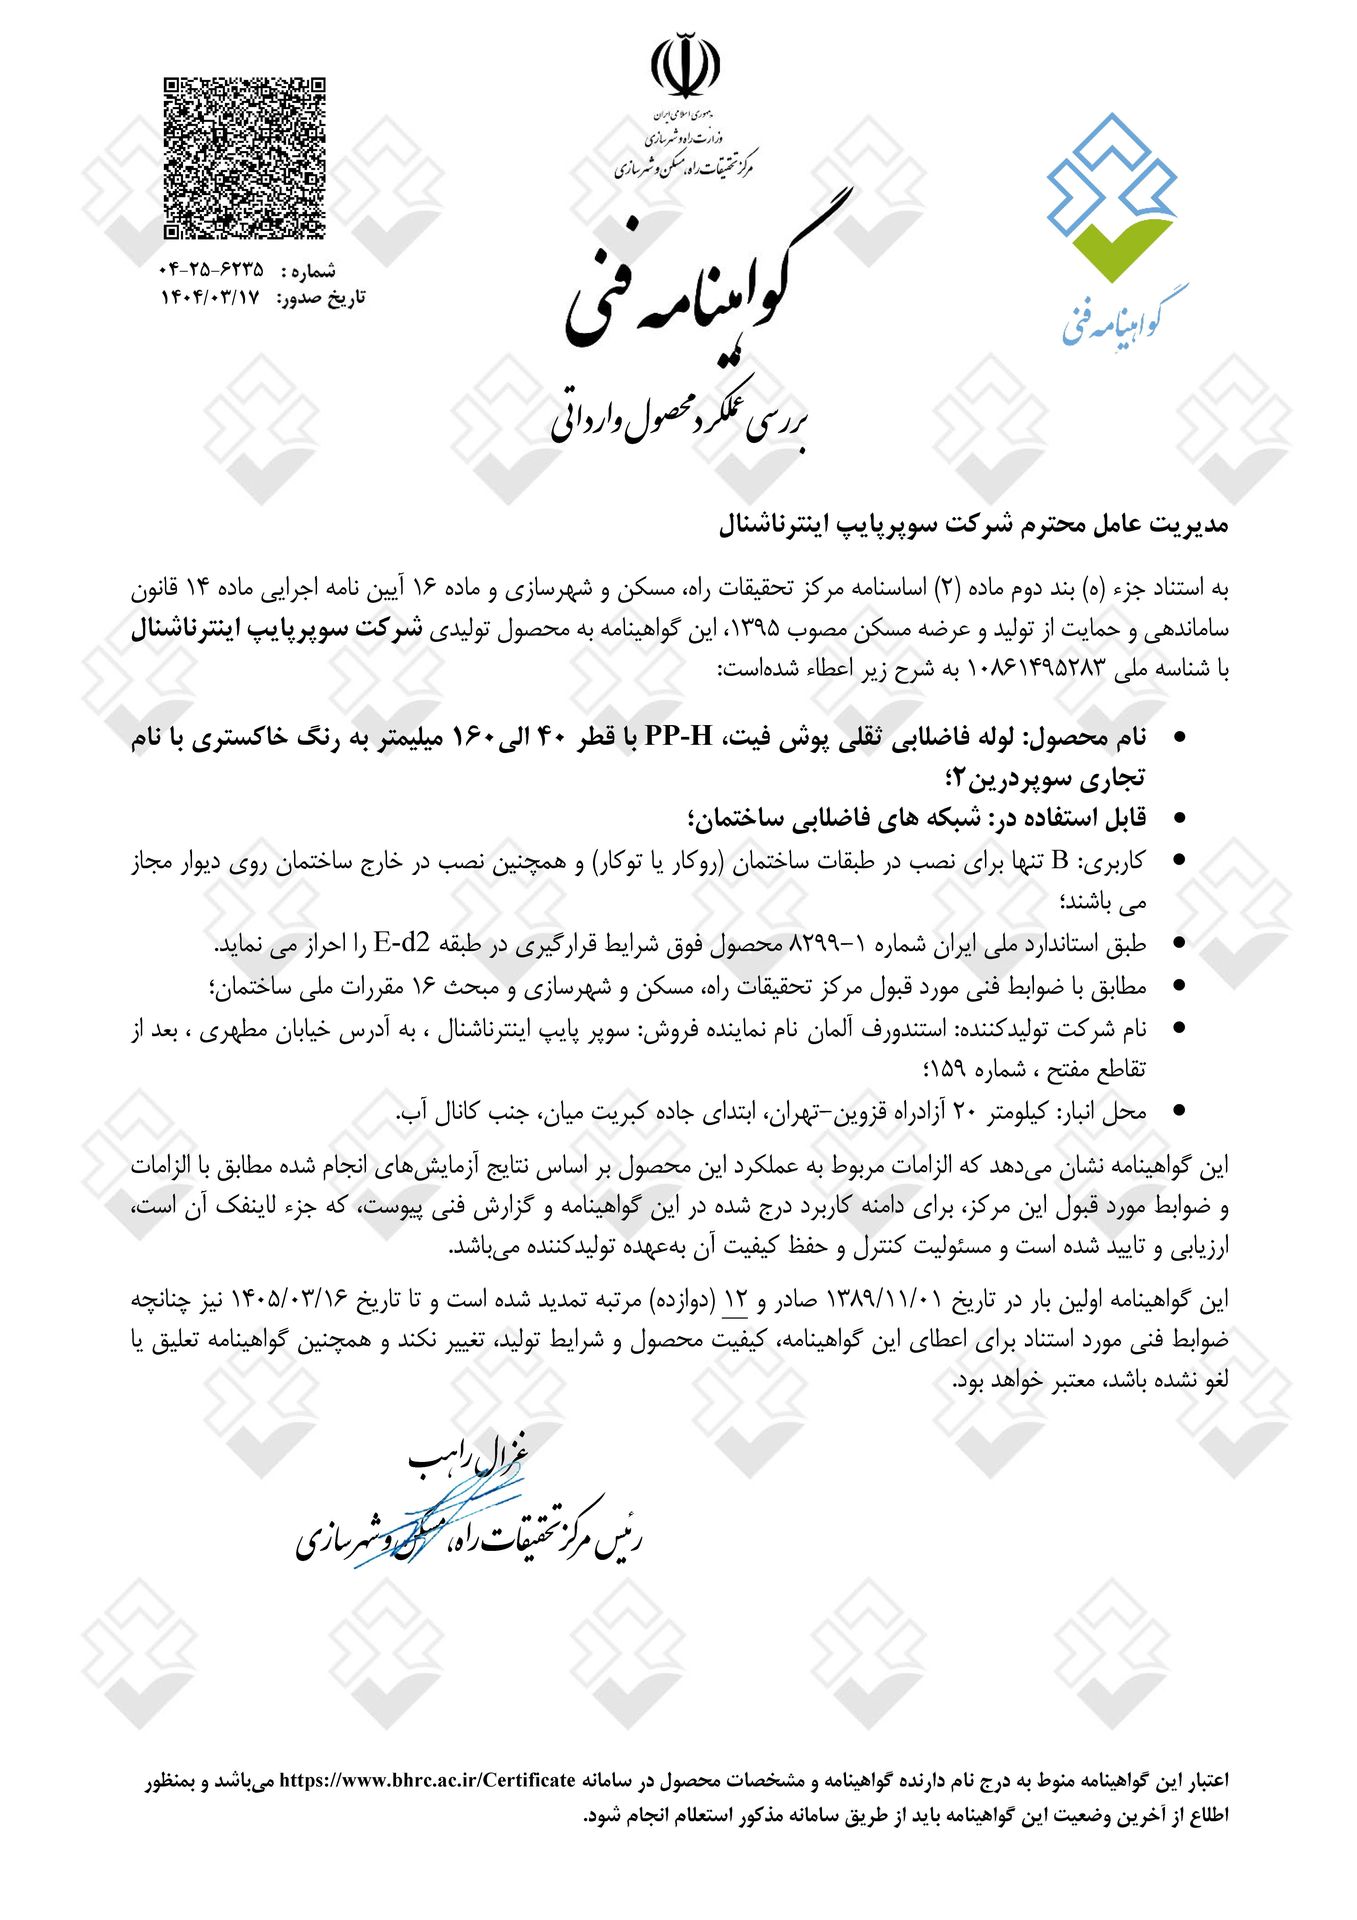 جمهوری اسلامی ایران
وزارت راه و شهرسازی
مرکز تحقیقات راه، مسکن و شهرسازی
گواهینامه فنی
شماره : ۰۴-۲۵-۶۲۳۵
تاریخ صدور: ۱۴۰۴/۰۳/۱۷
گواهینامه فنی
بررسی عملکرد محصول وارداتی
مدیریت عامل محترم شرکت سوپرپایپ اینترناشنال
به استناد جزء (ه) بند دوم ماده (۲) اساسنامه مرکز تحقیقات راه، مسکن و شهرسازی و ماده ۱۶ آیین نامه اجرایی ماده ۱۴ قانون
ساماندهی و حمایت از تولید و عرضه مسکن مصوب ۱۳۹۵، این گواهینامه به محصول تولیدی شرکت سوپرپایپ اینترناشنال
با شناسه ملی ۱۰۸۶۱۴۹۵۲۸۳ به شرح زیر اعطاء شده‌است:
• نام محصول: لوله فاضلابی ثقلی پوش فیت، PP-H با قطر ۴۰ الی۱۶۰ میلیمتر به رنگ خاکستری با نام
تجاری سوپردرین۲؛
• قابل استفاده در: شبکه های فاضلابی ساختمان؛
• کاربری: B تنها برای نصب در طبقات ساختمان (روکار یا توکار) و همچنین نصب در خارج ساختمان روی دیوار مجاز
می باشند؛
• طبق استاندارد ملی ایران شماره ۱-۸۲۹۹ محصول فوق شرایط قرارگیری در طبقه E-d2 را احراز می نماید.
• مطابق با ضوابط فنی مورد قبول مرکز تحقیقات راه، مسکن و شهرسازی و مبحث ۱۶ مقررات ملی ساختمان؛
• نام شرکت تولیدکننده: استندورف آلمان نام نماینده فروش: سوپر پایپ اینترناشنال ، به آدرس خیابان مطهری ، بعد از
تقاطع مفتح ، شماره ۱۵۹؛
• محل انبار: کیلومتر ۲۰ آزادراه قزوین-تهران، ابتدای جاده کبریت میان، جنب کانال آب.
این گواهینامه نشان می‌دهد که الزامات مربوط به عملکرد این محصول بر اساس نتایج آزمایش‌های انجام شده مطابق با الزامات
و ضوابط مورد قبول این مرکز، برای دامنه کاربرد درج شده در این گواهینامه و گزارش فنی پیوست، که جزء لاینفک آن است،
ارزیابی و تایید شده است و مسئولیت کنترل و حفظ کیفیت آن به‌عهده تولیدکننده می‌باشد.
این گواهینامه اولین بار در تاریخ ۱۳۸۹/۱۱/۰۱ صادر و ۱۲ (دوازده) مرتبه تمدید شده است و تا تاریخ ۱۴۰۵/۰۳/۱۶ نیز چنانچه
ضوابط فنی مورد استناد برای اعطای این گواهینامه، کیفیت محصول و شرایط تولید، تغییر نکند و همچنین گواهینامه تعلیق یا
لغو نشده باشد، معتبر خواهد بود.
غزال راهب
رئیس مرکز تحقیقات راه، مسکن و شهرسازی
اعتبار این گواهینامه منوط به درج نام دارنده گواهینامه و مشخصات محصول در سامانه https://www.bhrc.ac.ir/Certificate می‌باشد و بمنظور
اطلاع از آخرین وضعیت این گواهینامه باید از طریق سامانه مذکور استعلام انجام شود.